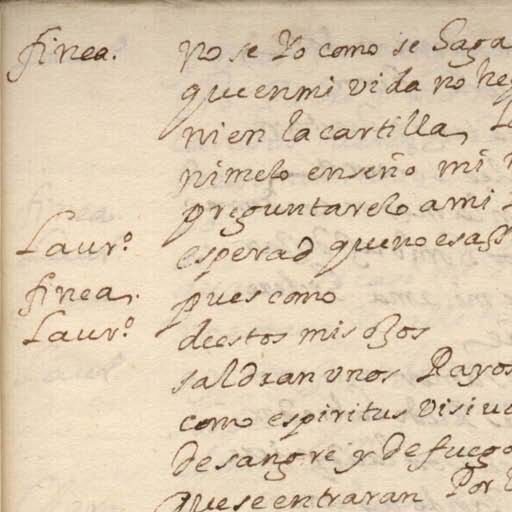 finea. no se Yo como se haga
que en mi vida no he
ni en la cartilla,
ni me lo enseño mi
preguntarelo a mi
Laur.º esperad que no es assi
finea. pues como
Laur.º de estos mis ojos
saldran vnos Rayos
como espiritus visiuo
de sangre y de fuego
que se entraran Por